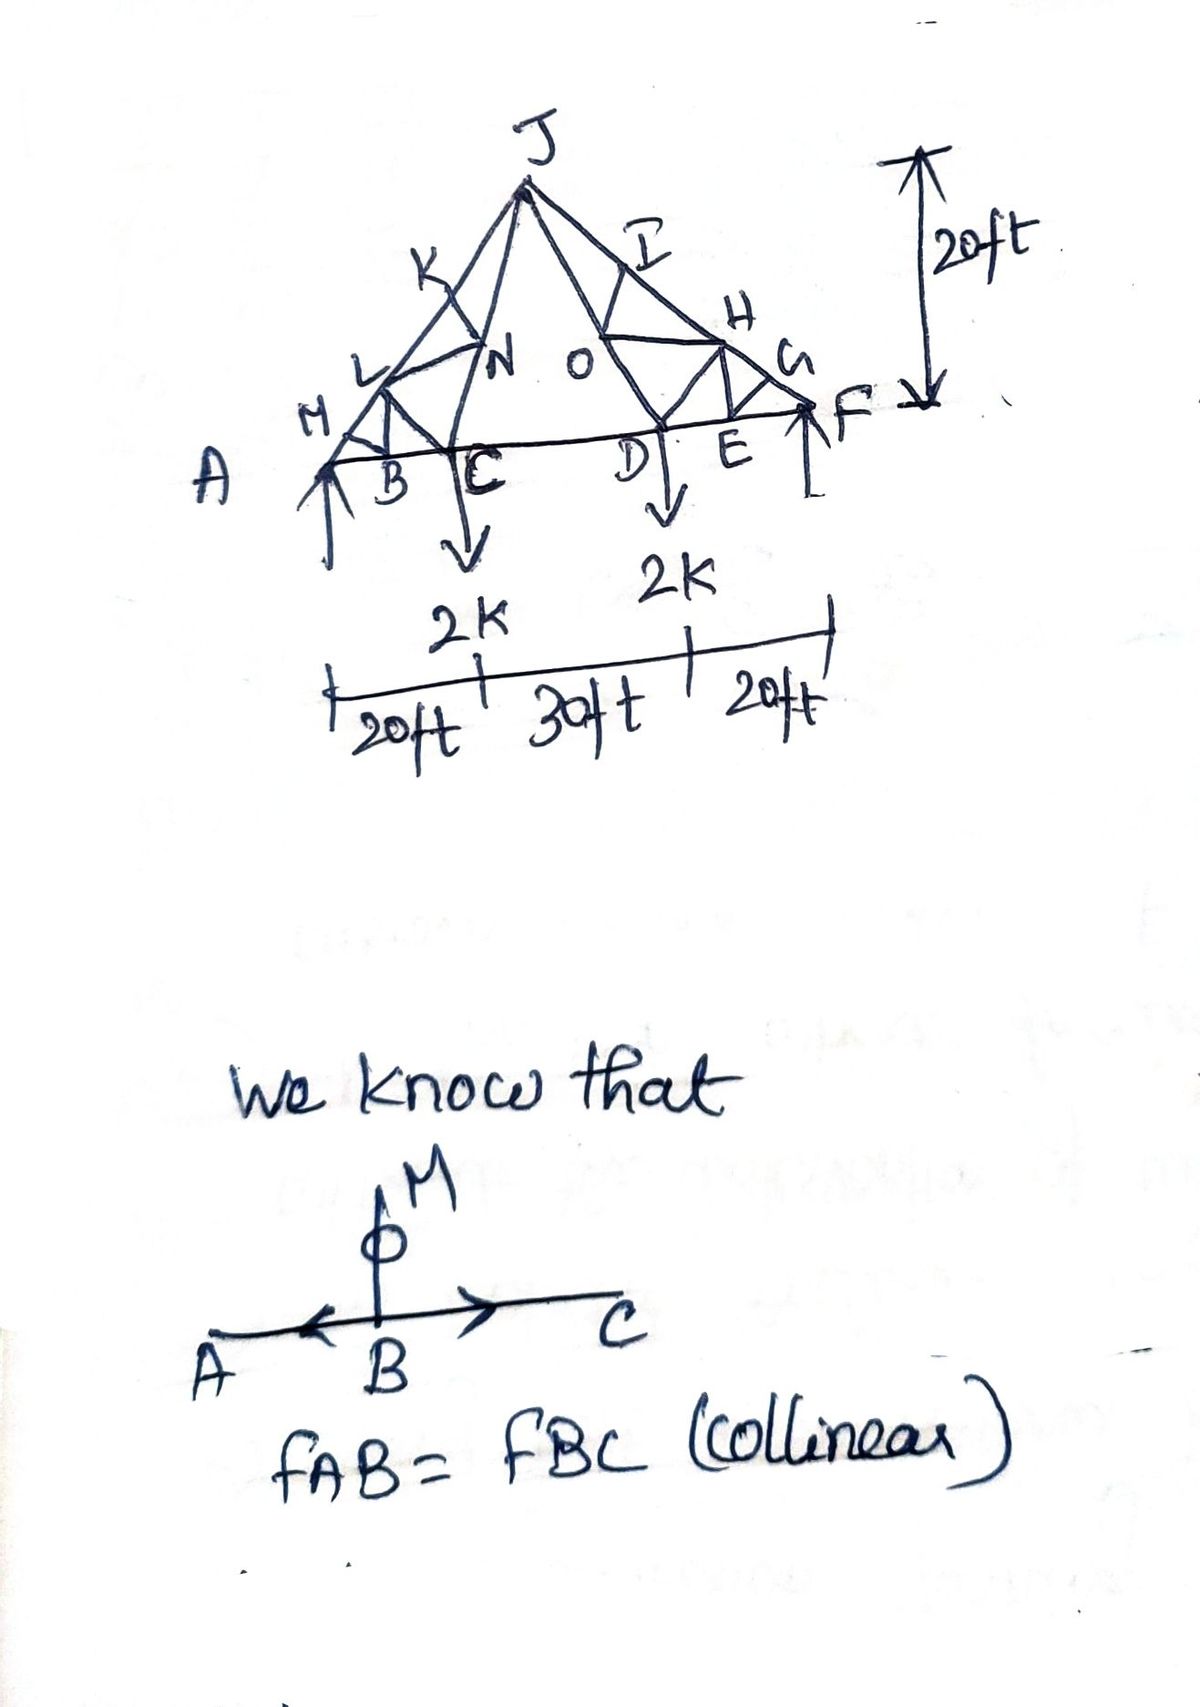 J
I
K
20ft
H
L
N
O
G
M
F
A
B
C
D
E
2K
2K
20ft
30ft
20ft
we know that
M
A
B
C
FAB = FBC (collinear)